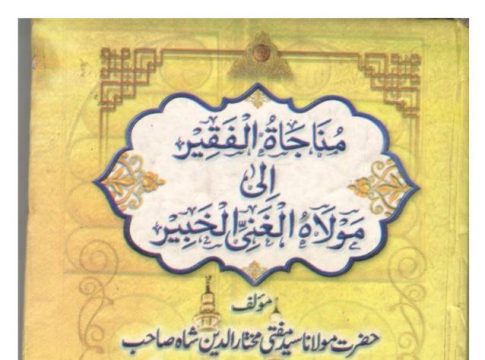 مُنَاجَاةُ الْفَقِيْرِ
اِلٰى
مَوْلَاهُ الْغَنِىِّ الْخَبِيْرِ
مؤلف
حضرت مولانا سید مفتی مختار الدین شاہ صاحب